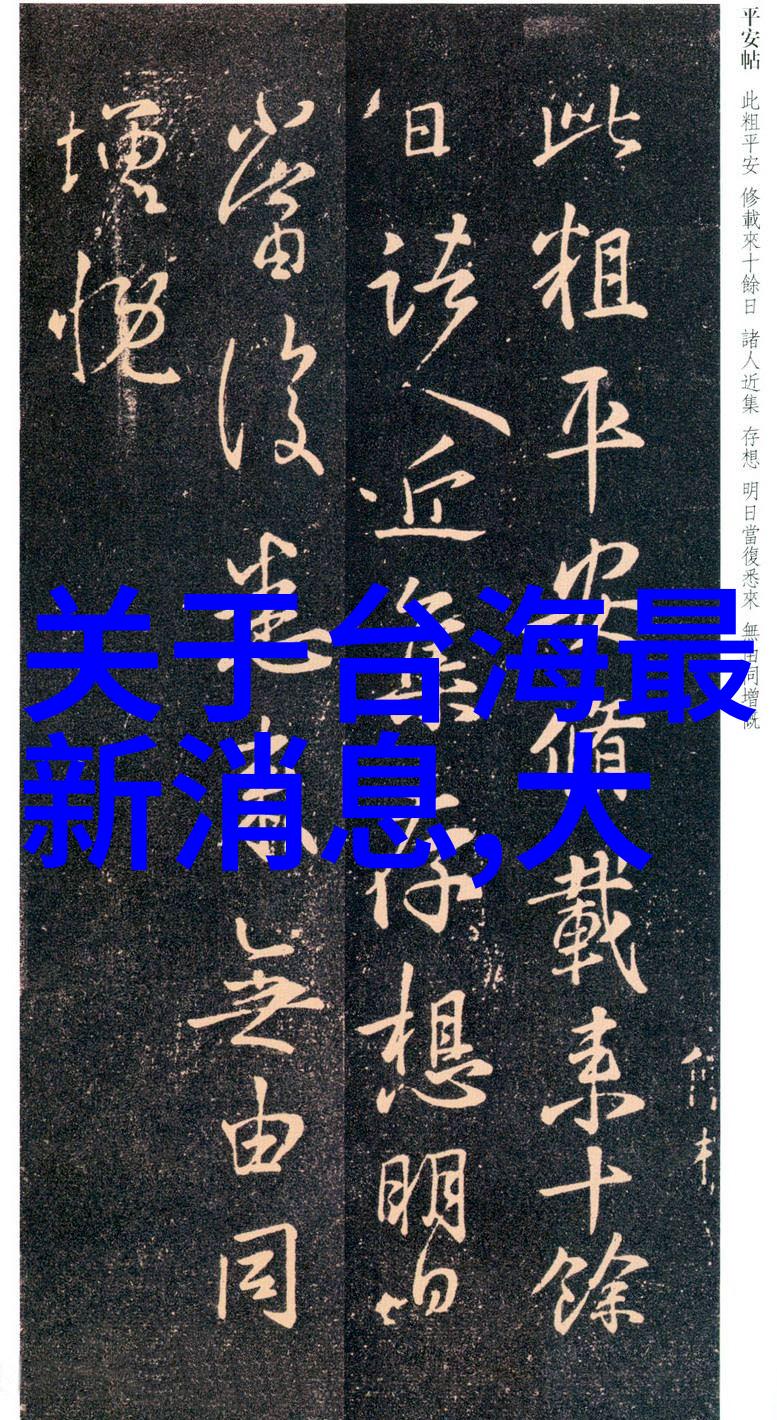 平安帖 此粗平安 修載來十餘日 諸人近集 存想 明日當復悉來 無由同增慨
此粗平安脩載来十餘
日諸人近集存想明日
當復悉来無由同
增慨
关于台海最
新消息,大